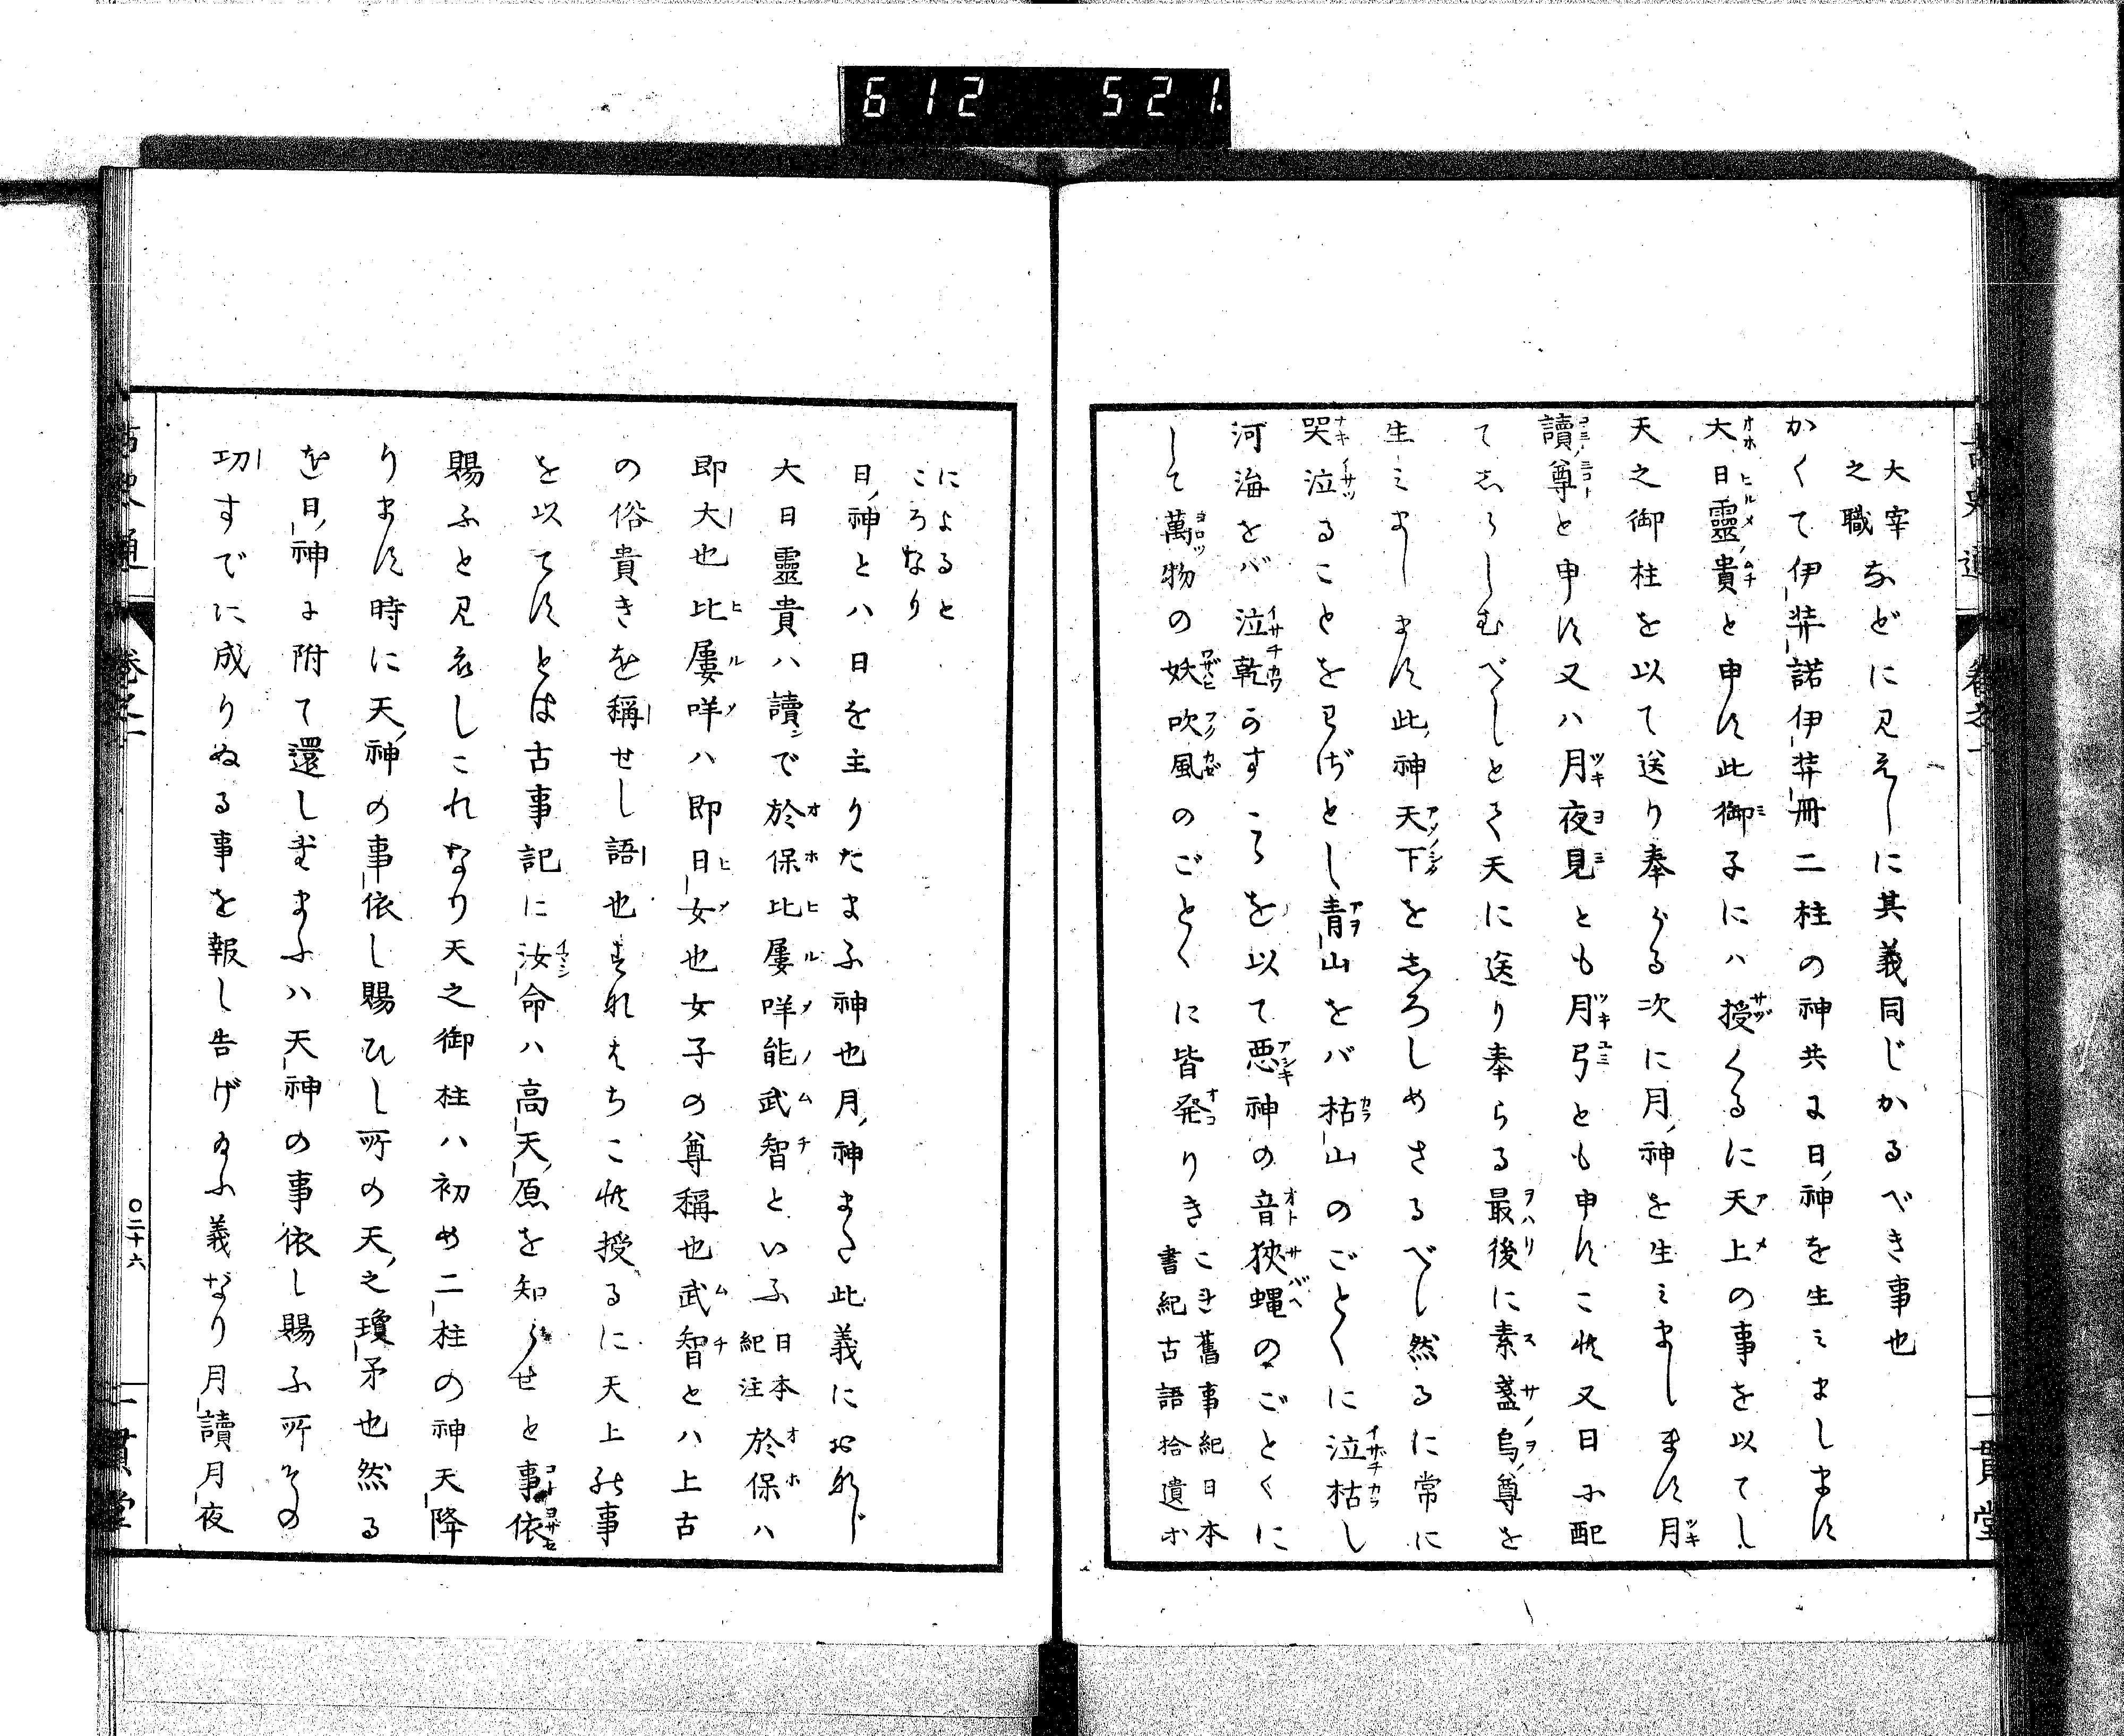 612 521.
大宰
之職
などに見えしに其義同じかるべき事也
かくて伊弉諾伊弉冊二柱の神共に日神を生ミましまして
大日靈貴と申す此御子にハ授くるに天上の事を以てし
天之御柱を以て送り奉らる次に月神を生ミまします月
讀尊と申す又ハ月夜見とも月弓とも申すこれ又日に配
てしらしむべしとて天に送り奉らる最後に素盞烏尊を
生ミまします此神天下をしろしめさるべし然るに常に
哭泣ることをわざとし青山をバ枯山のごとくに泣枯し
河海をバ泣乾のすころを以て悪神の音狹蝿のごとくに
して萬物の妖吹風のごとくに皆発りき
こは舊事紀日本
書紀古語拾遺ホ
によると
ころなり
日神とハ日を主りたまふ神也月神また此義におなじ
大日靈貴ハ讀で於保比屢咩能武智といふ
日本
紀注
於保ハ
即大也比屢咩ハ即日女也女子の尊稱也武智とハ上古
の俗貴きを稱せし語也すなはちこれ授るに天上の事
を以てすとは古事記に汝命ハ高天原を知らせと事依
賜ふと見えしこれなり天之御柱ハ初め二柱の神天降
ります時に天神の事依し賜ひし所の天之瓊矛也然る
を日神に附て還したまふハ天神の事依し賜ふ所その
功すでに成りぬる事を報し告げ給ふ義なり月讀月夜
卷之一
〇二十六
一貫堂
古史通
卷之一
一貫堂